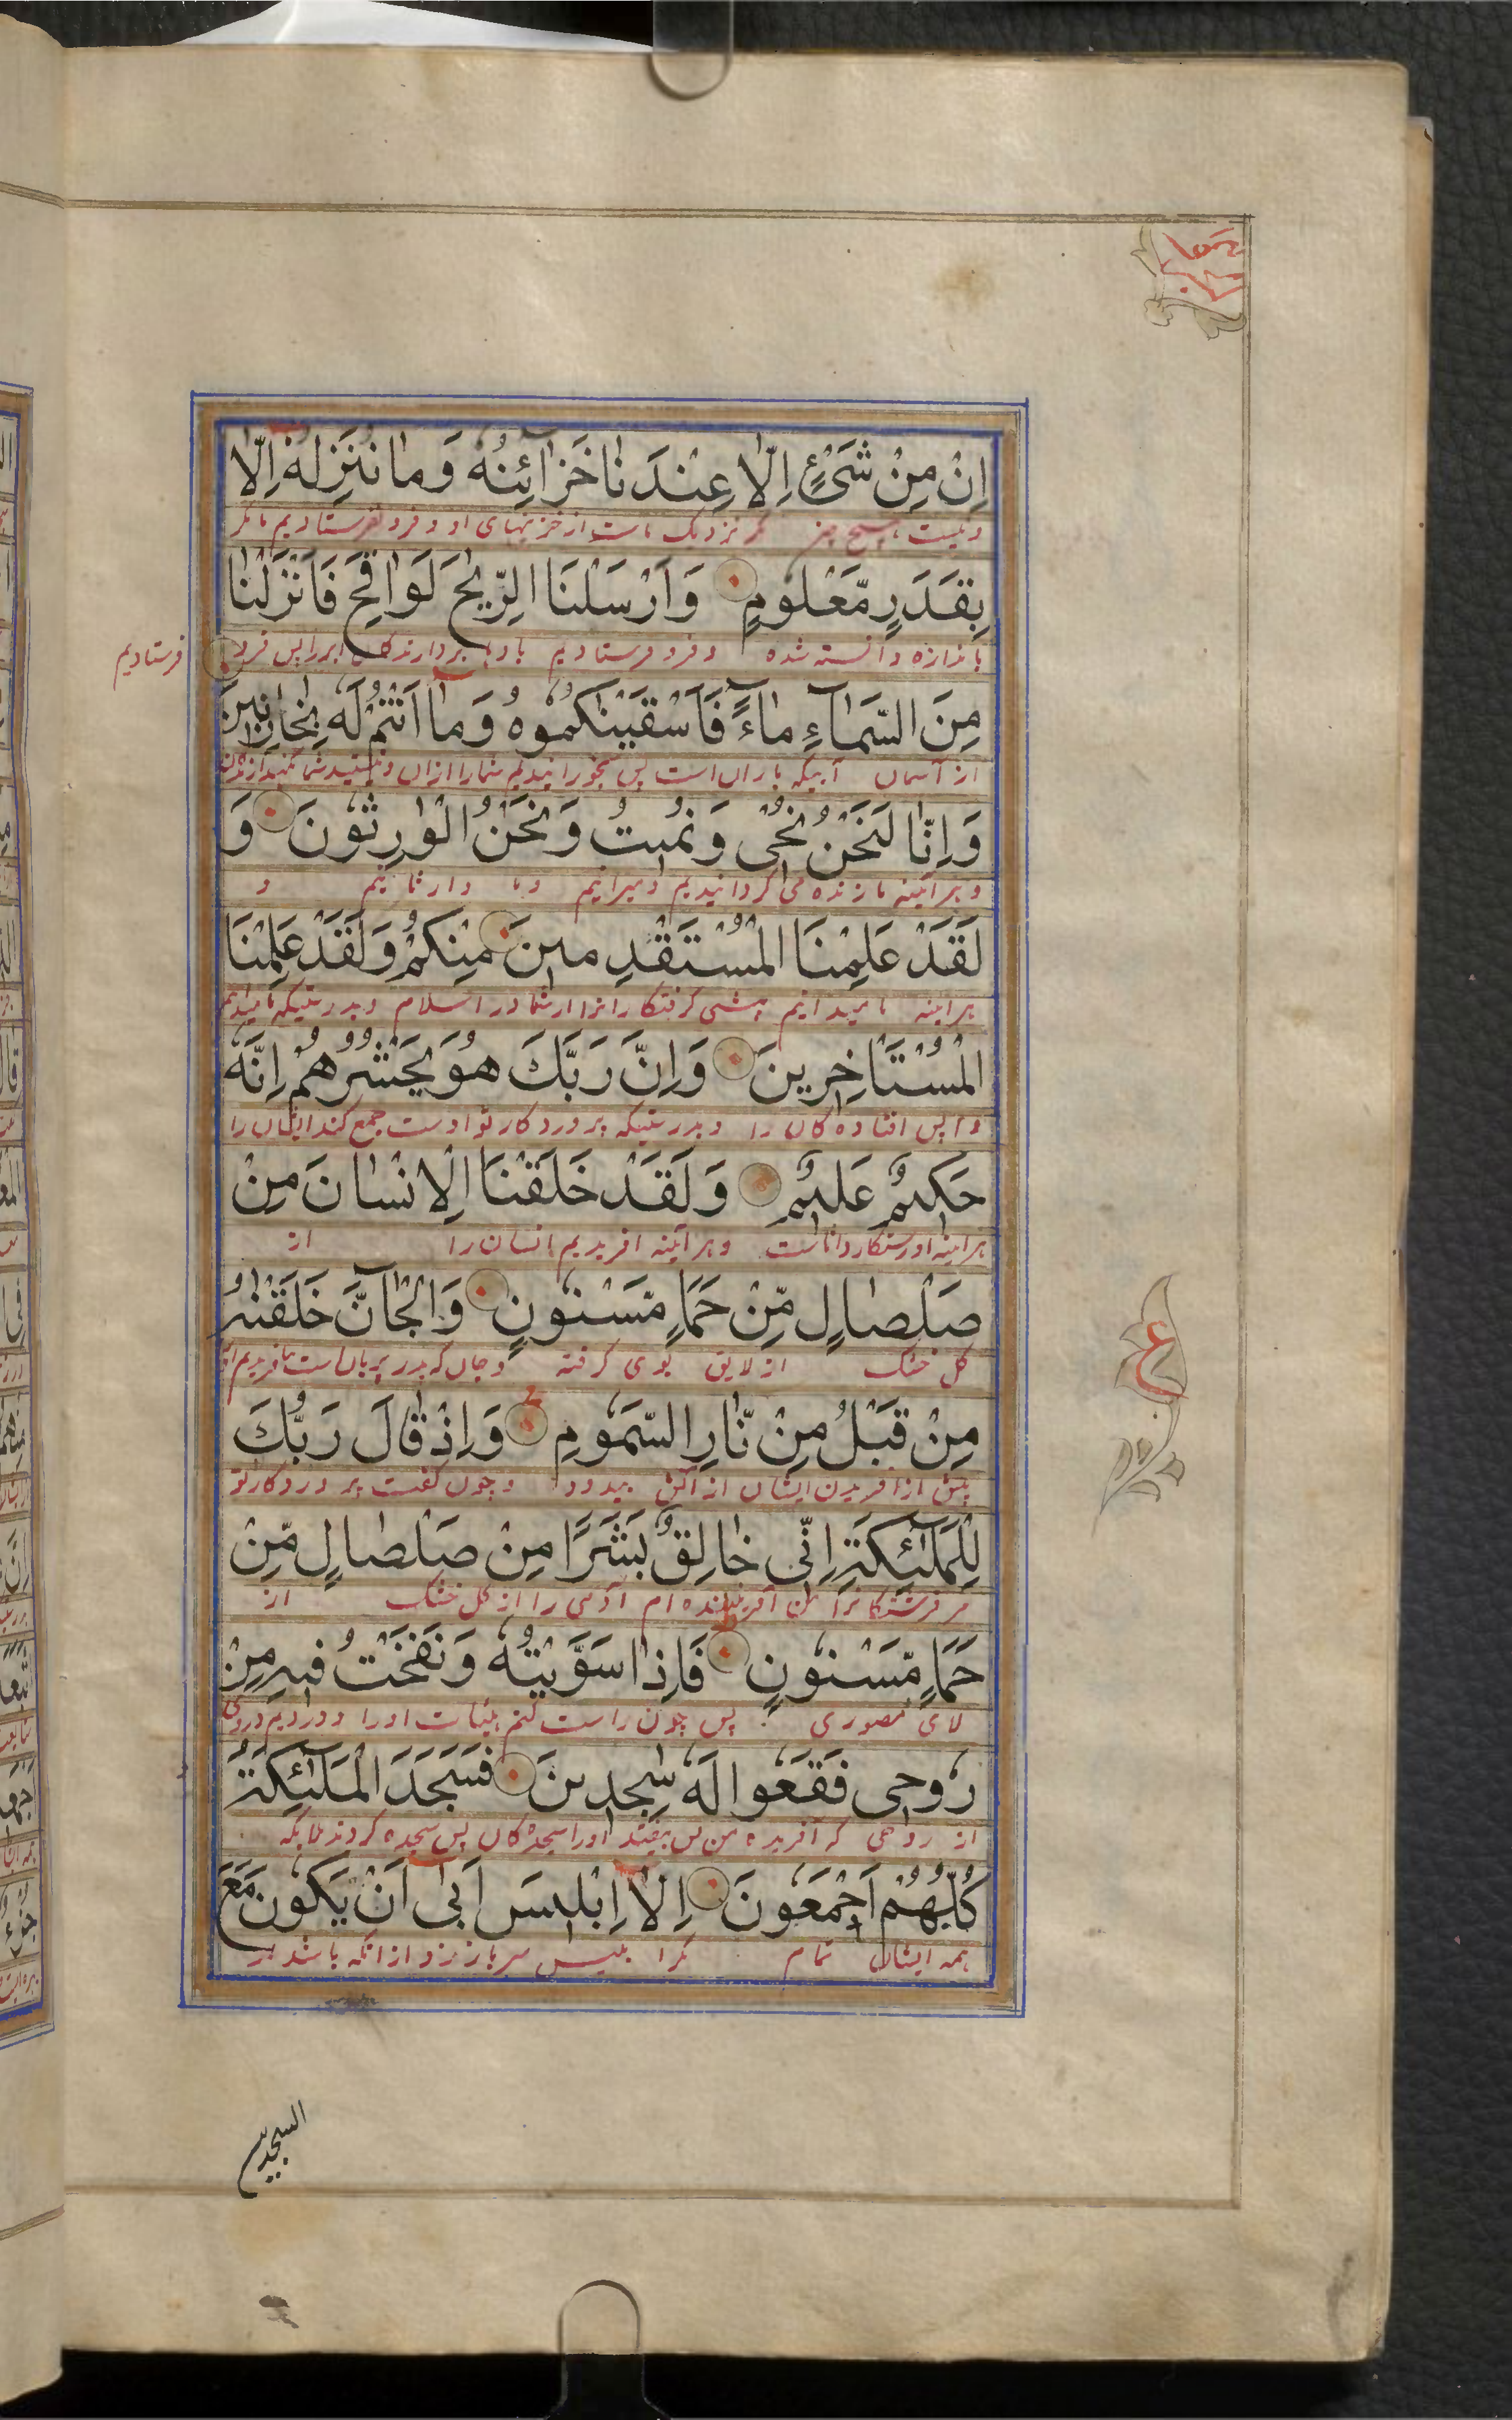 اِنْ مِنْ شَیْءٍ اِلَّا عِنْدَنَا خَزَائِنُهٗ وَمَا نُنَزِّلُهٗ اِلَّا
ونیست هیچ چیز مگر نزدیک ماست از خزینهای او و فرو نفرستادیم ما مگر
بِقَدَرٍ مَّعْلُومٍ وَاَرْسَلْنَا الرِّیٰحَ لَوَاقِحَ فَاَنْزَلْنَا
باندازه دانسته شده و فرو فرستادیم بادها بردارندگان ابر را پس فرو
فرستادیم
مِنَ السَّمَآءِ مَآءً فَاَسْقَیْنٰکُمُوهُ وَمَا اَنْتُمْ لَهٗ بِخَازِنِینَ
از آسمان آبیکه باران است پس بخورانیدیم شمارا ازان
وَاِنَّا لَنَحْنُ نُحْیٖ وَنُمِیتُ وَنَحْنُ الْوٰرِثُوْنَ وَ
و هر آئینه ما زنده می گردانیدیم و میرانیم و ما وارثانیم و
لَقَدْ عَلِمْنَا الْمُسْتَقْدِمِینَ مِنْکُمْ وَلَقَدْ عَلِمْنَا
هر اینه ما میدانیم پیشی گرفتگانرا از شما در اسلام و بدرستیکه ما میدانیم
الْمُسْتَاْخِرِینَ وَاِنَّ رَبَّكَ هُوَ یَحْشُرُهُمْ اِنَّهٗ
واپس افتاده کان را و بدرستیکه پروردکار تو اوست جمع کند ایشان را
حَکِیمٌ عَلِیمٌ وَلَقَدْ خَلَقْنَا الْاِنْسَانَ مِنْ
هر اینه او درستکار داناست و هر آئینه افریدیم انسان را از
صَلْصَالٍ مِّنْ حَمَاٍ مَّسْنُوْنٍ وَالْجَآنَّ خَلَقْنٰهُ
کل خشک از لایق بوی کرفته و جان که پدر پریان است بیافریدیم او
مِنْ قَبْلُ مِنْ نَّارِ السَّمُوْمِ وَاِذْ قَالَ رَبُّكَ
پیش از افریدن ایشان از آتش بیدود و چون گفت پروردکار تو
لِلْمَلٰٓئِکَةِ اِنِّی خَالِقٌ بَشَرًا مِنْ صَلْصَالٍ مِّنْ
مر فرشتکانرا من آفریننده ام آدمی را از کل خشک از
حَمَاٍ مَّسْنُوْنٍ فَاِذَا سَوَّیْتُهٗ وَنَفَخْتُ فِیهِ مِنْ
لای مصوری پس چون راست کنم هیئات اورا و دردیم دروی
رُوحِی فَقَعُوا لَهٗ سٰجِدِینَ فَسَجَدَ الْمَلٰٓئِکَةُ
از روحی که آفریده من پس بیفتید اورا سجده کان پس سجده کردند ملایکه
کُلُّهُمْ اَجْمَعُونَ اِلَّا اِبْلِیسَ اَبٰی اَنْ یَکُونَ مَعَ
همه ایشان تمام مگر ابلیس سر باز زد از انکه باشد
السجدین
ع